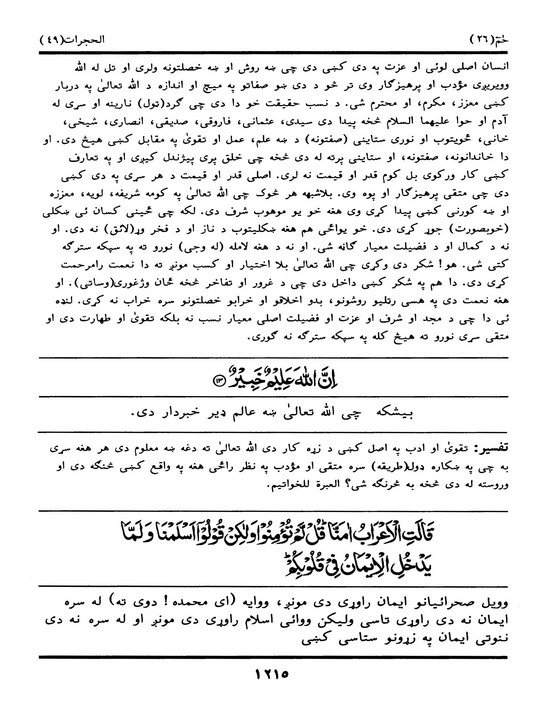 حٰمٓ(٢٦)
الحجرات(٤٩)
انسان اصلی لوئی او عزت په دی کښی دی چی ښه روش او ښه خصلتونه ولری او تل له الله
وویریږی مؤدب او پرهیزگار وی تر څو د دی ښو صفاتو په میچ او اندازه د الله تعالیٰ په دربار
کښی معزز، مکرم، او محترم شی. د نسب حقیقت خو دا دی چی گرد(ټول) نارینه او سړی له
آدم او حوا علیهما السلام څخه پیدا دی سیدی، عثمانی، فاروقی، صدیقی، انصاری، شیخی،
خانی، څویتوب او نوری ستاینی (صفتونه) د ښه علم، عمل او تقویٰ په مقابل کښی هیڅ دی. او
دا خاندانونه، صفتونه، او ستاینی پرته له دی څخه چی خلق پری پیژندل کیږی او په تعارف
کښی کار ورکوی بل کوم قدر او قیمت نه لری. اصلی قدر او قیمت د هر سړی په دی کښی
دی چی متقی پرهیزگار او پوه وی. بلاشبهه هر څوک چی الله تعالیٰ په کومه شریفه، لویه، معززه
او ښه کورنی کښی پیدا کړی وی هغه خو یو موهوب شرف دی. لکه چی ځینی کسان ئی ښکلی
(خوبصورت) جوړ کړی دی. خو یوائی هم هغه ښکلیتوب د ناز او د فخر وړ(لائق) نه دی. او
نه د کمال او د فضیلت معیار گاڼه شی. او نه د هغه لامله (له وجی) نورو ته په سپکه سترگه
کتی شی. هو! شکر دی وکړی چی الله تعالیٰ بلا اختیار او کسب مونږ ته دا نعمت رامرحمت
کړی دی. دا هم په شکر کښی داخل دی چی د غرور او تفاخر څخه ځان وژغوری(وساتی). او
هغه نعمت دی په هسی رتلیو روشونو، بدو اخلاقو او خرابو خصلتونو سره خراب نه کړی. لنډه
ئی دا چی د مجد او شرف او عزت او فضیلت اصلی معیار نسب نه بلکه تقویٰ او طهارت دی او
متقی سړی نورو ته هیڅ کله په سپکه سترگه نه گوری.
اِنَّ اللّٰهَ عَلِيْمٌ خَبِيْرٌ ۝١٣
بیشکه چی الله تعالیٰ ښه عالم ډیر خبردار دی.
تفسیر: تقویٰ او ادب په اصل کښی د زړه کار دی الله تعالیٰ ته دغه ښه معلوم دی هر هغه سړی
به چی په ښکاره ډول(طریقه) سره متقی او مؤدب په نظر رائی هغه په واقع کښی څنگه دی او
وروسته له دی څخه به څرنگه شی؟ العبرة للخواتیم.
قَالَتِ الْاَعْرَابُ اٰمَنَّا قُلْ لَّمْ تُؤْمِنُوْا وَلٰكِنْ قُوْلُوْٓا اَسْلَمْنَا وَلَمَّا
يَدْخُلِ الْاِيْمَانُ فِيْ قُلُوْبِكُمْ ؕ
وویل صحرائیانو ایمان راوړی دی مونږ، ووایه (ای محمده! دوی ته) له سره
ایمان نه دی راوړی تاسی ولیکن ووائی اسلام راوړی دی مونږ او له سره نه دی
ننوتی ایمان په زړونو ستاسی کښی
١٢١٥